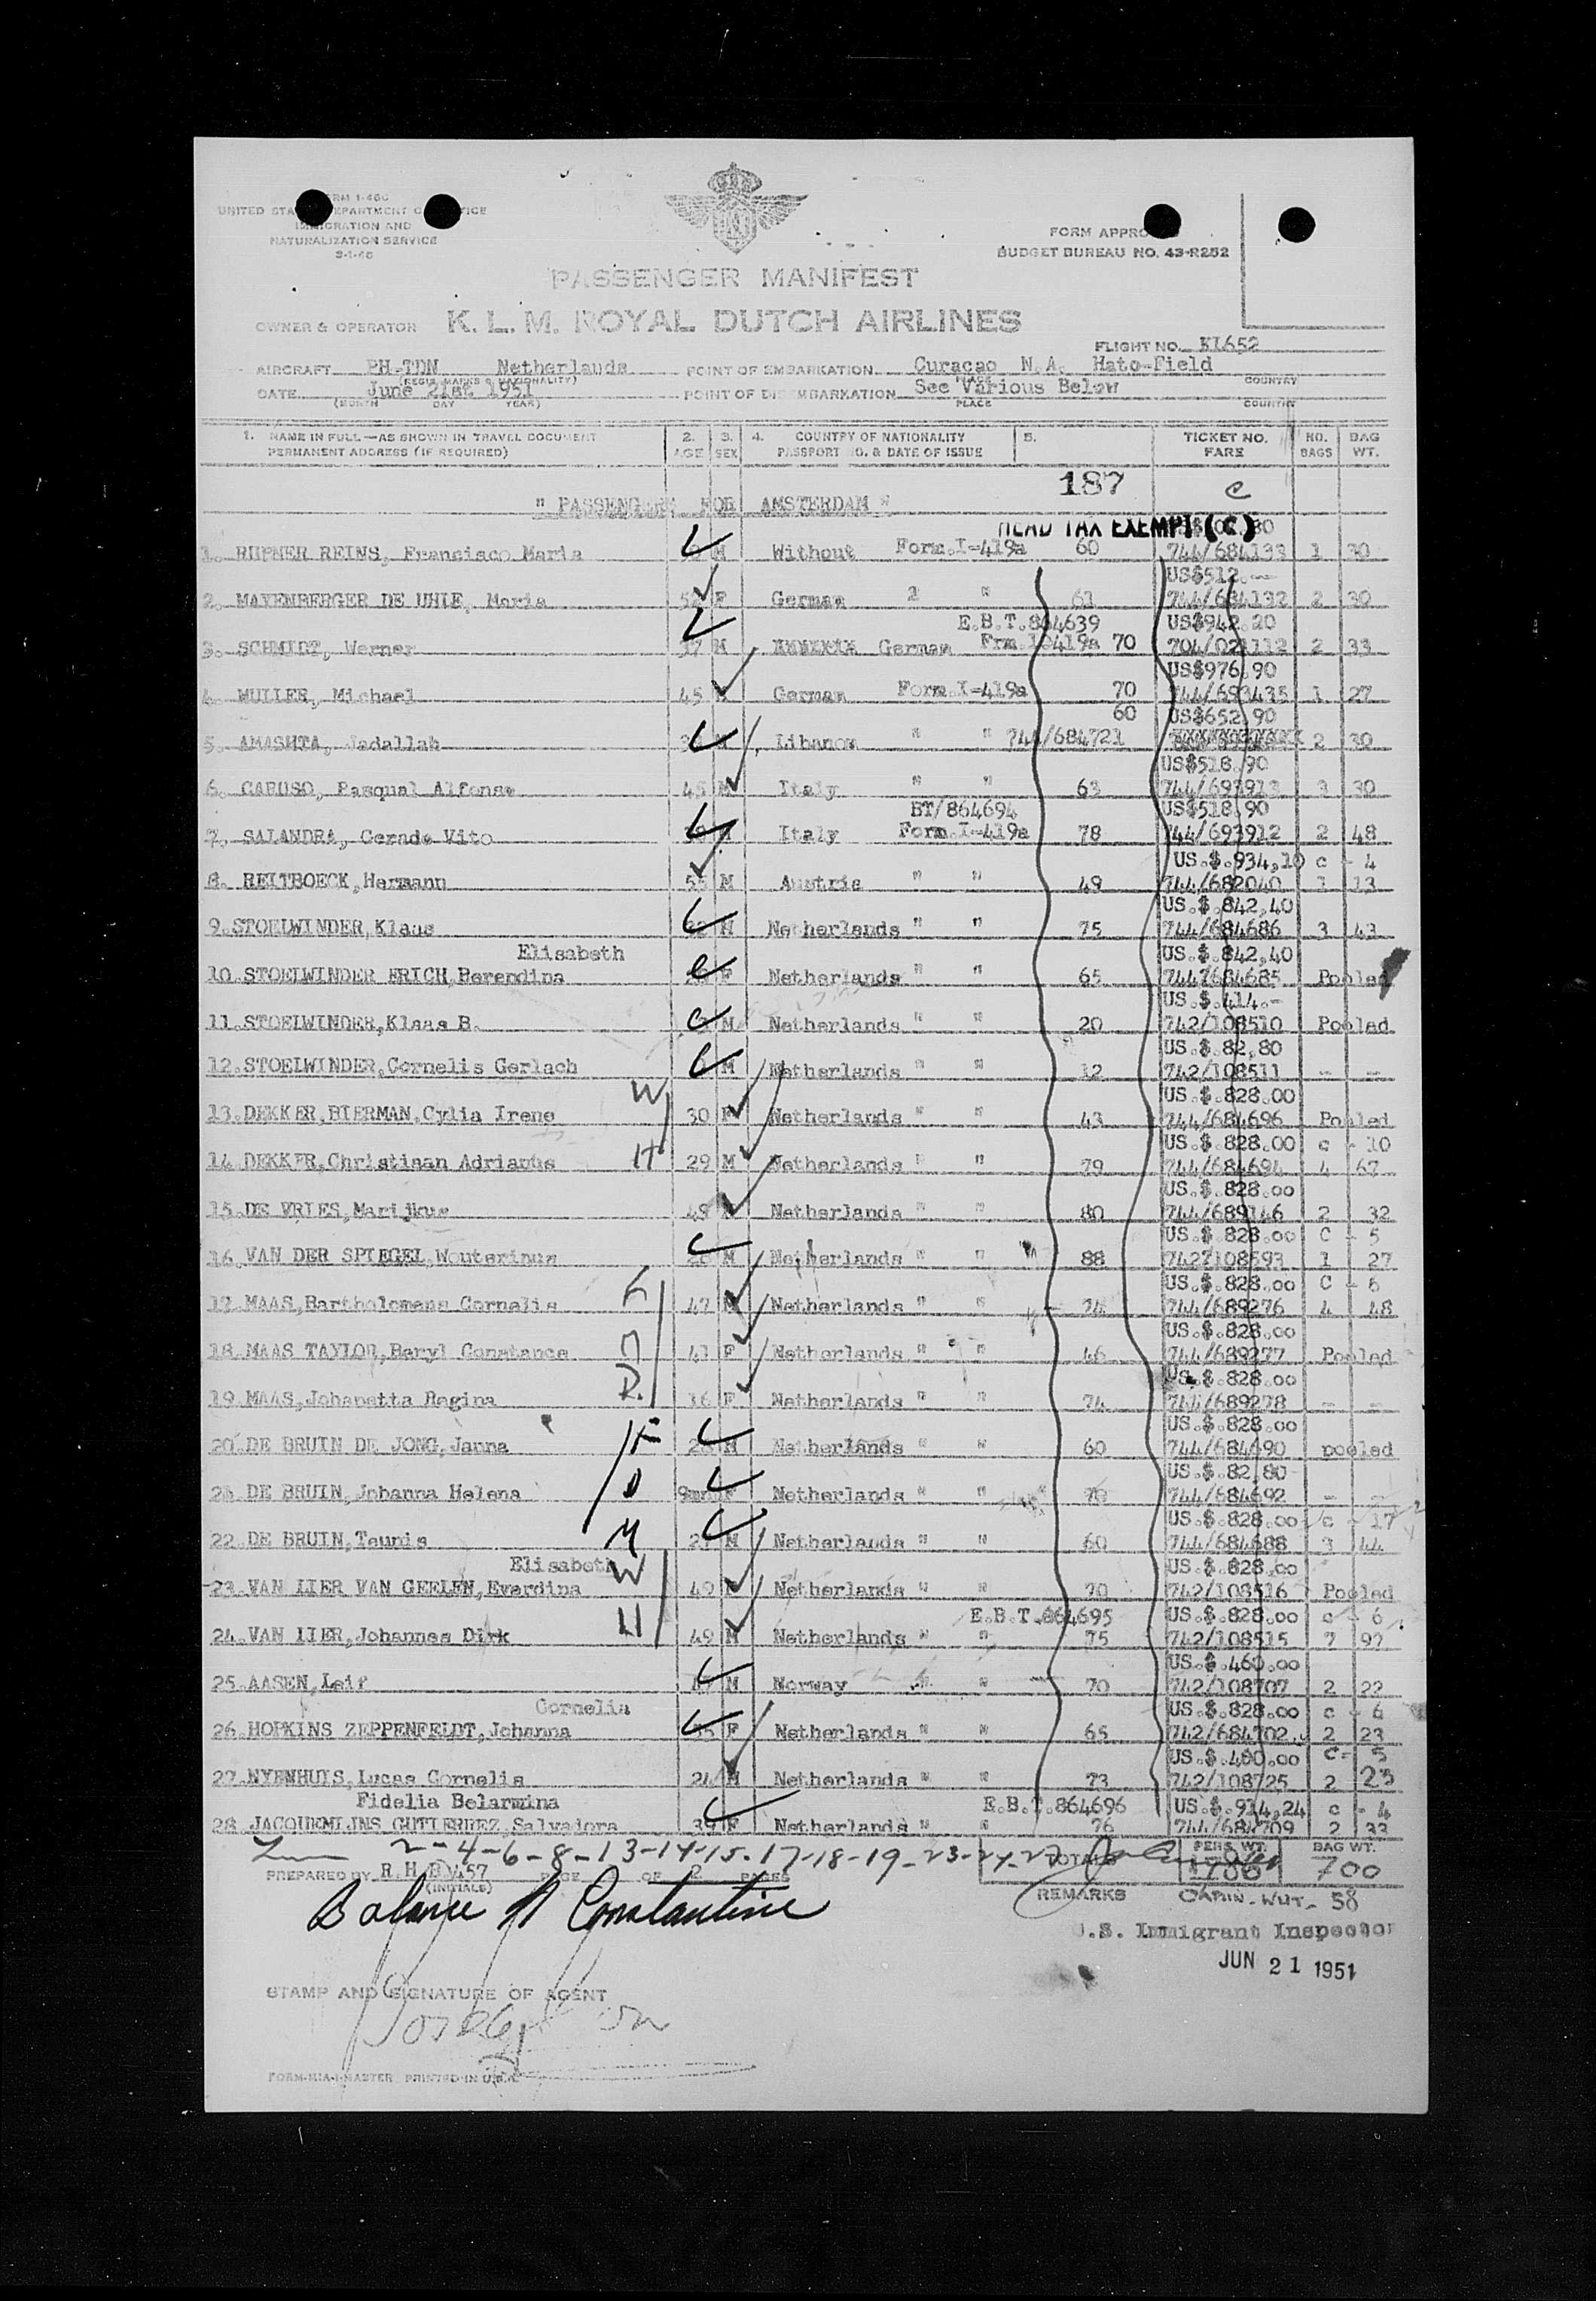 FORM I-466
UNITED STATES DEPARTMENT OF JUSTICE
IMMIGRATION AND
NATURALIZATION SERVICE
FORM APPROVED
BUDGET BUREAU NO. 43-R252
PASSENGER MANIFEST
OWNER & OPERATOR K. L. M. ROYAL DUTCH AIRLINES
FLIGHT NO. KL652
AIRCRAFT PH-TDN Netherlands POINT OF EMBARKATION Curacao N.A. Hato-Field
(REGIS. MARKS & NATIONALITY) PLACE COUNTRY
DATE June 21st 1951 POINT OF DISEMBARKATION See Various Below
(MONTH DAY YEAR) PLACE COUNTRY
1. NAME IN FULL—AS SHOWN IN TRAVEL DOCUMENT 2. 3. 4. COUNTRY OF NATIONALITY 5. TICKET NO. NO. BAG
PERMANENT ADDRESS (IF REQUIRED) AGE SEX PASSPORT NO. & DATE OF ISSUE FARE BAGS WT.
187 C
" PASSENGERS FOR AMSTERDAM "
HEAD TAX EXEMPT (C)
1. Francisco Maria M Without Form.I-419a 60 744/684133 1 30
US$512.—
2. MAYENBERGER DE UHLE, Maria F German " " 63 744/684132 2 30
E.B.T.864639 US$942.20
3. SCHMIDT, Werner 37 M German Frm.I-419a 70 704/021112 2 33
US$976.90
4. MULLER, Michael 45 German Form.I-419a 70 744/693435 1 27
60 US$652.90
5. AMASHTA, Jadallah Libanon " " 744/684721 2 30
US$518.90
6. CARUSO, Pasqual Alfonse 45 M Italy " " 63 744/693913 3 30
BT/864694 US$518.90
7. SALANDRA, Gerade Vito M Italy Form.I-419a 78 744/693912 2 48
US.$.934,10 c - 4
8. REITBOECK,Hermann 55 M Austria " " 49 744/682040 1 13
US.$.842,40
9.STOELWINDER,Klaas M Netherlands " " 75 744/684686 3 43
Elisabeth US.$.842,40
10.STOELWINDER ERICH,Berendina F Netherlands " " 65 744/684685 Pooled
US.$.414.-
11.STOELWINDER,Klaas B. M Netherlands " " 20 742/108510 Pooled
US.$.82,80
12.STOELWINDER,Cornelis Gerlach M Netherlands " " 12 742/108511 - -
W US.$.828.00
13.DEKKER,BIERMAN,Cylia Irene 30 F Netherlands " " 43 744/684696 Pooled
US.$.828.00 c - 10
14 DEKKER,Christiaan Adrianus H 29 M Netherlands " " 79 744/684694 4 67
US.$.828.00
15.DE VRIES,Marijkus 49 Netherlands " " 80 744/689146 2 32
US.$.828.00 C - 5
16.VAN DER SPIEGEL,Wouterinus M Netherlands " " 88 742/108593 1 27
US.$.828.00 C - 6
17.MAAS,Bartholomeus Cornelis 47 M Netherlands " " 74 744/689276 4 48
US.$.828.00
18.MAAS TAYLOR,Beryl Constance 41 F Netherlands " " 46 744/689277 Pooled
US.$.828.00
19.MAAS,Johanetta Regina 16 F Netherlands " " 74 744/689278 - -
US.$.828.00
20.DE BRUIN DE JONG,Janna Netherlands " " 60 744/684690 pooled
US.$.82,80
21 DE BRUIN,Johanna Helena D 9mnd F Netherlands " " 744/684692 - -
US.$.828.00 c - 17
22.DE BRUIN,Teunis M M Netherlands " " 60 744/684688 3 44
Elisabeth W US.$.828.00
23.VAN LIER VAN GEELEN,Everdina 49 Netherlands " " 70 742/108516 Pooled
E.B.T.864695 US.$.828.00 c - 6
24.VAN LIER,Johannes Dirk H 49 M Netherlands " " 75 742/108515 7 97
US.$.460.00
25.AASEN,Leif M Norway " " 70 742/108707 2 22
Cornelia US.$.828.00 c - 4
26.HOPKINS ZEPPENFELDT,Johanna F Netherlands " " 65 742/684702 2 23
US.$.400.00 C - 5
27.NYENHUIS,Lucas Cornelis 24 M Netherlands " " 73 742/108725 2 23
Fidelia Belarmina E.B.T.864696 US.$.914,24 c - 4
28.JACQUEMIJNS GUTIERREZ,Salvadora 39 F Netherlands " " 76 744/684709 2 33
2-4-6-8-13-14-15-17-18-19-23-24-27 TOTALS PERS. WT. BAG WT.
PREPARED BY R.H.B. (INITIALS) PAGE OF 2 PAGES 700
Balance N Constantine REMARKS CABIN-WHT- 58
U.S. Immigrant Inspector
JUN 21 1951
STAMP AND SIGNATURE OF AGENT
FORM-MIA-I-MASTER PRINTED IN U.S.A.